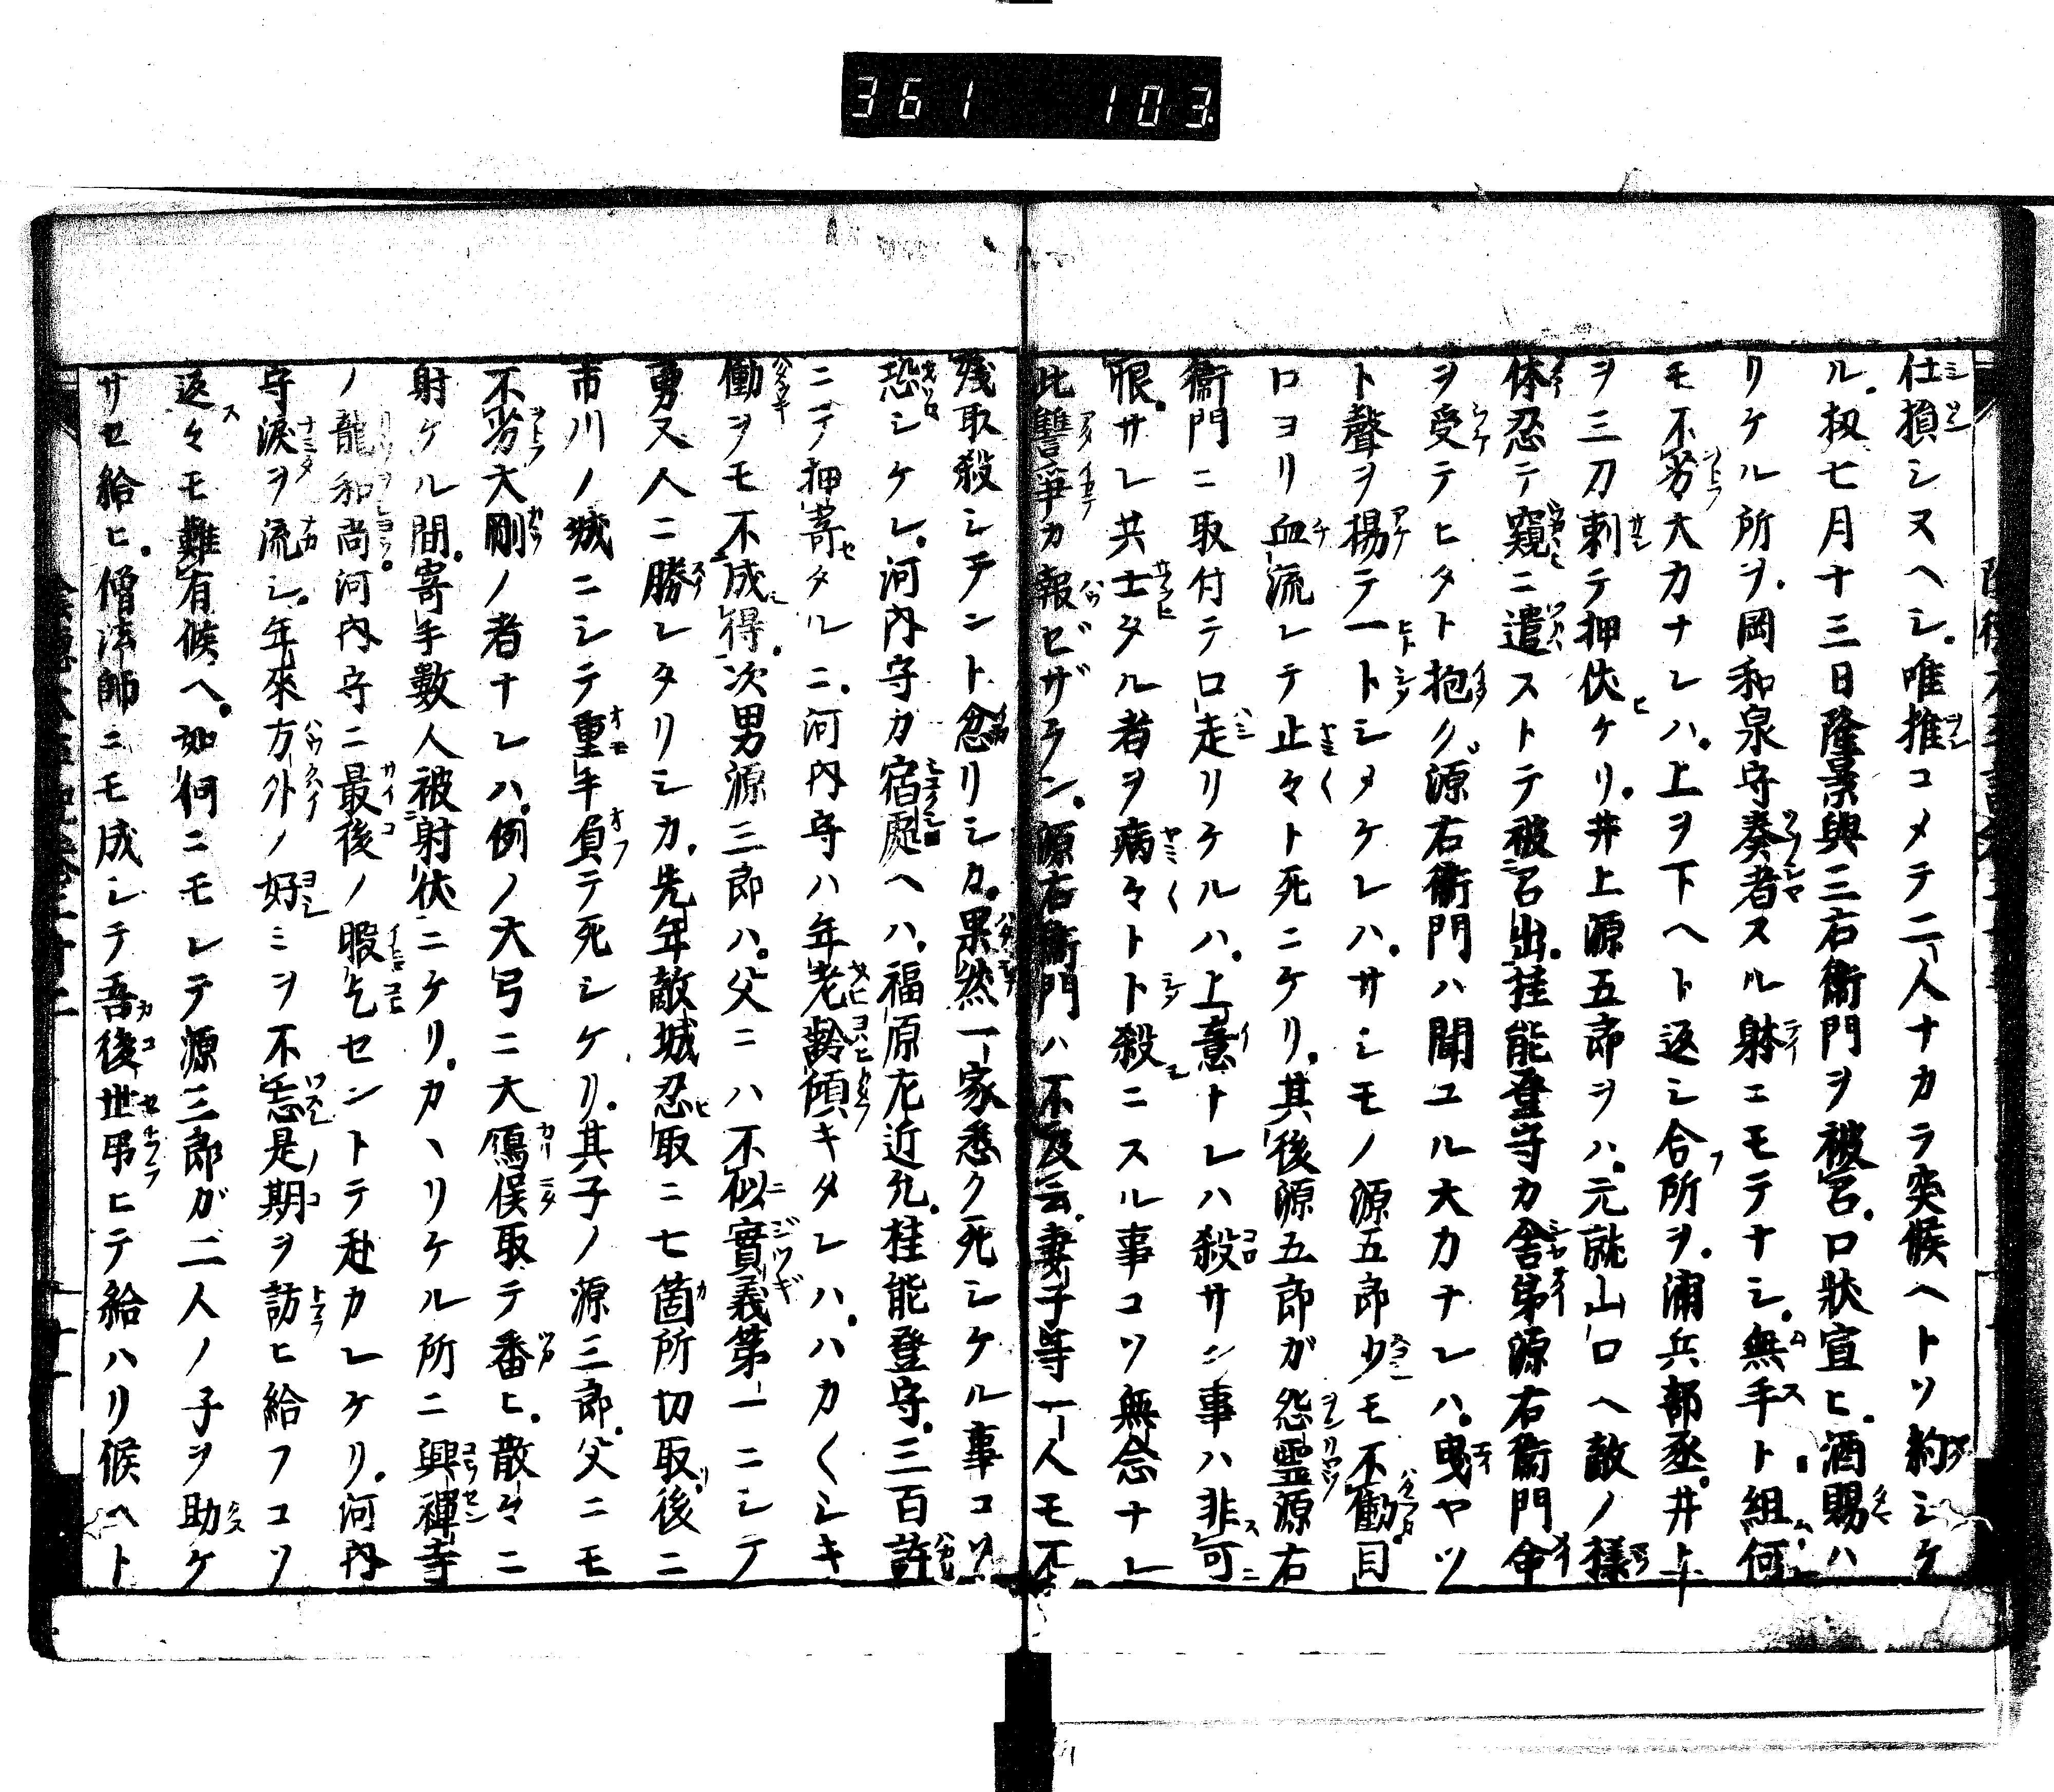 361 103
仕損シヌヘシ。唯推コメテ二人ナカラ突候ヘトソ約シケ
ル。扨七月十三日隆景與三右衛門ヲ被召。口狀宣ヒ。酒賜ハ
リケル所ヲ。岡和泉守奏者スル躰ニモテナシ。無手ト組。何
モ不劣大力ナレハ。上ヲ下ヘト返シ合所ヲ。浦兵部丞。井上
ヲ三刀刺テ押伏ケリ。井上源五郎ヲハ。元就山口ヘ敵ノ樣
体忍テ窺ニ遣ストテ被召出。桂能登守カ舍弟源右衛門命
ヲ受テヒタト抱ク。源右衛門ハ聞ユル大力ナレハ。曳ヤツ
ト聲ヲ揚テ一トシメケレハ。サシモノ源五郎少モ不働。目
口ヨリ血流レテ止々ト死ニケリ。其後源五郎ガ怨霊源右
衛門ニ取付テ口走リケルハ。上意ナレハ殺サン事ハ非可
恨。サレ共士タル者ヲ病々トト殺ニスル事コソ無念ナレ
此讐爭カ報ゼザラン。源右衛門ハ不及云。妻子等一人モ不
殘取殺シテント忿リシカ。果然一家悉ク死シケル事コソ
恐シケレ。河内守カ宿處ヘハ。福原左近允。桂能登守。三百許
ニテ押寄タルニ。河内守ハ年老齡傾キタレハ。ハカ〱シキ
働ヲモ不成得。次男源三郎ハ。父ニハ不似實義第一ニシテ
勇又人ニ勝レタリシカ。先年敵城忍取ニ七箇所切取。後ニ
市川ノ城ニシテ重手負テ死シケリ。其子ノ源三郎。父ニモ
不劣大剛ノ者ナレハ。例ノ大弓ニ大鴈俣取テ番ヒ。散々ニ
射ケル間。寄手數人被射伏ニケリ。カヽリケル所ニ興禅寺
ノ龍和尚。河内守ニ最後ノ暇乞セントテ赴カレケリ。河内
守淚ヲ流シ。年來方外ノ好ミヲ不忘是期ヲ訪ヒ給フコソ
返々モ難有候ヘ。如何ニモレテ源三郎ガ二人ノ子ヲ助ケ
サセ給ヒ。僧法師ニモ成シテ吾後世弔ヒテ給ハリ候ヘト